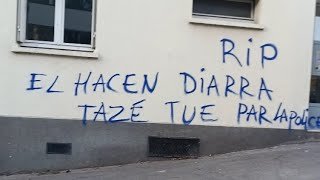 RIP
EL HACEN DIARRA
TAZÉ TUE PAR LA POLICE